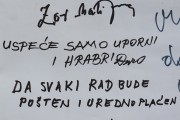 USPEĆE SAMO UPORNI
I HRABRI
DA SVAKI RAD BUDE
POŠTEN I UREDNO PLAĆEN